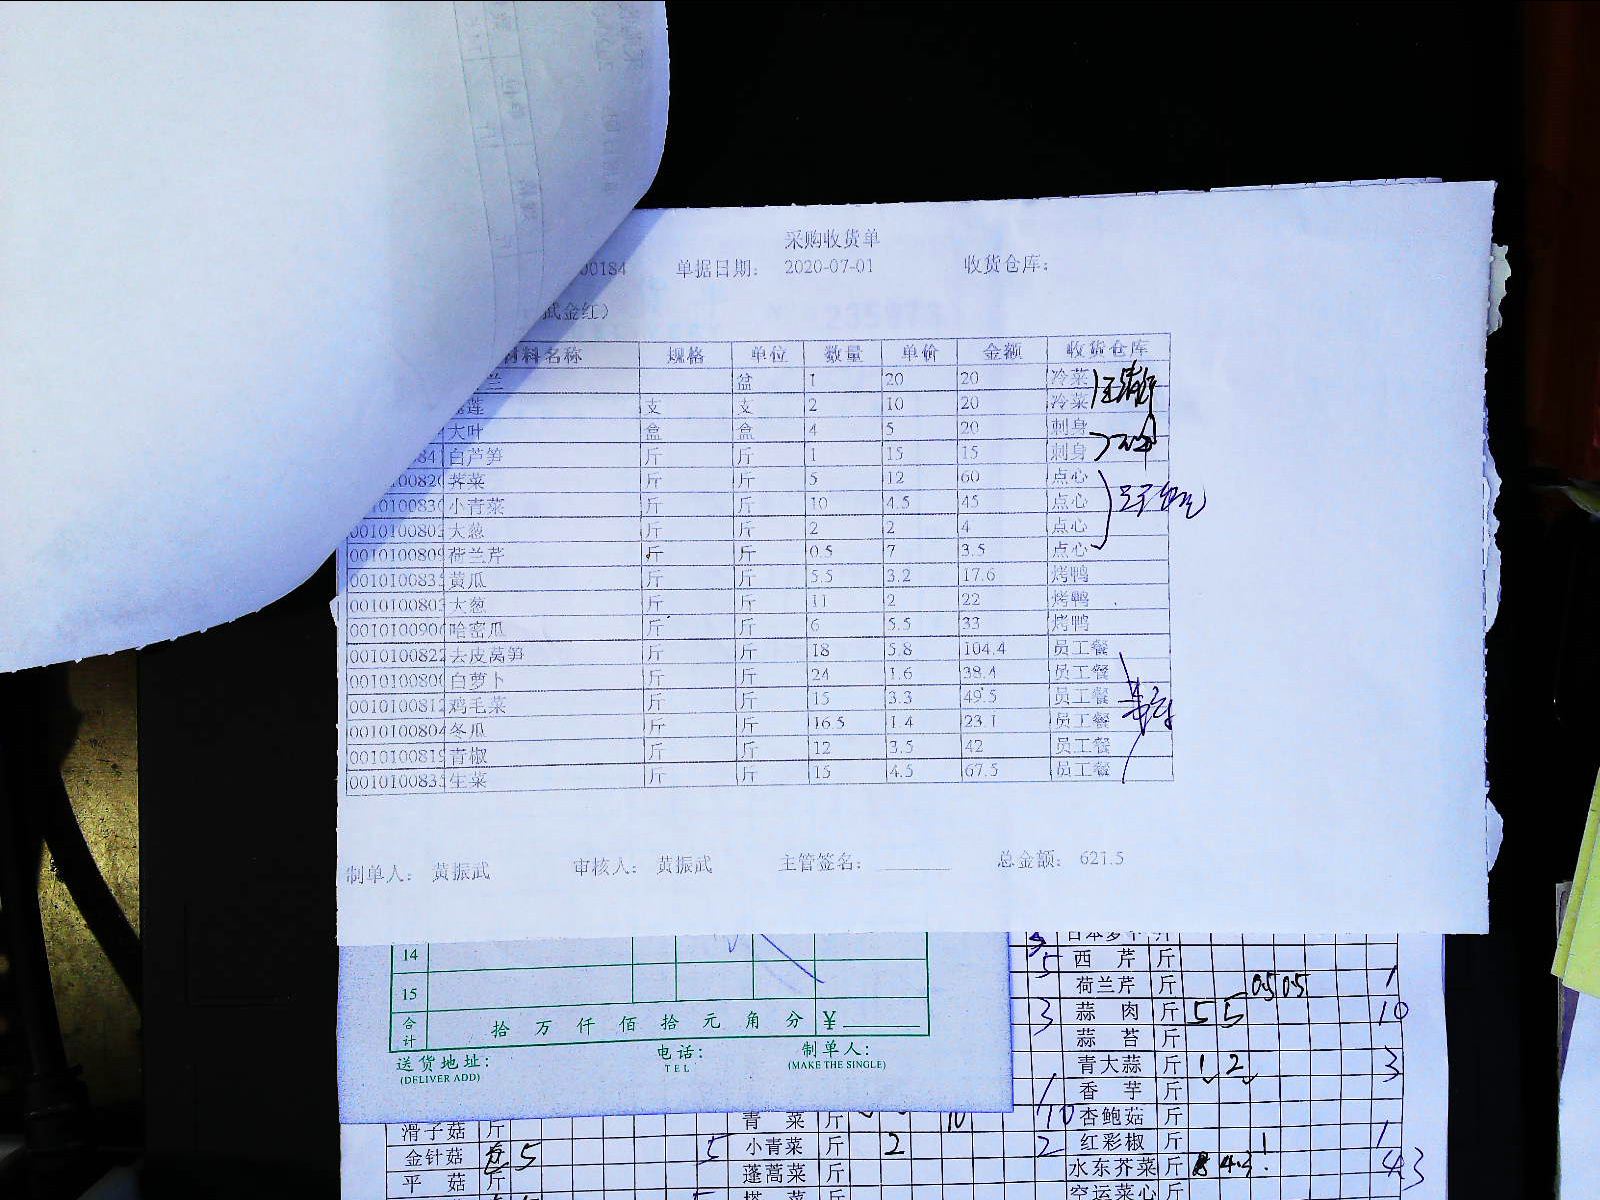 采购收货单
00184 单据日期： 2020-07-01 收货仓库：
武金红）
材料名称 规格 单位 数量 单价 金额 收货仓库
兰 盆 1 20 20 冷菜
莲 支 支 2 10 20 冷菜
大叶 盒 盒 4 5 20 刺身
白芦笋 斤 斤 1 15 15 刺身
荠菜 斤 斤 5 12 60 点心
小青菜 斤 斤 10 4.5 45 点心
0010100803 大葱 斤 斤 2 2 4 点心
0010100809 荷兰芹 斤 斤 0.5 7 3.5 点心
001010083 黄瓜 斤 斤 5.5 3.2 17.6 烤鸭
0010100803 大葱 斤 斤 11 2 22 烤鸭
001010090 哈密瓜 斤 斤 6 5.5 33 烤鸭
0010100822 去皮莴笋 斤 斤 18 5.8 104.4 员工餐
001010080 白萝卜 斤 斤 24 1.6 38.4 员工餐
0010100812 鸡毛菜 斤 斤 15 3.3 49.5 员工餐
0010100804 冬瓜 斤 斤 16.5 1.4 23.1 员工餐
001010081 青椒 斤 斤 12 3.5 42 员工餐
001010083 生菜 斤 斤 15 4.5 67.5 员工餐
制单人： 黄振武 审核人： 黄振武 主管签名： 总金额： 621.5
14
15
合计 拾 万 仟 佰 拾 元 角 分 ¥
送货地址: 电话: 制单人:
(DELIVER ADD) TEL (MAKE THE SINGLE)
5 西 芹 斤
荷兰芹 斤 0.5 0.5 1
3 蒜 肉 斤 5 5 10
蒜 苔 斤
青大蒜 斤 1 2 3
1 香 芋 斤
青 菜 斤 10 10 杏鲍菇 斤
滑子菇 斤
小青菜 斤 2 2 红彩椒 斤 1 1
金针菇 斤 5 5
蓬蒿菜 斤 水东芥菜 斤 4.3 43
平 菇 斤
空运菜心 斤